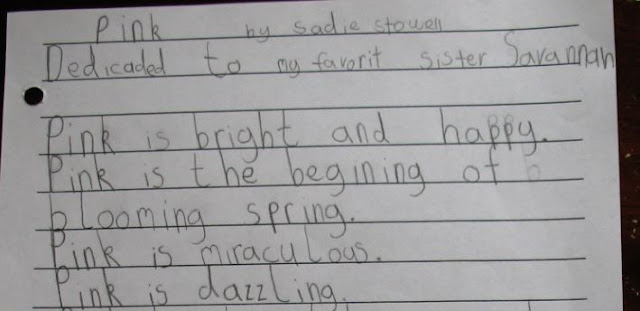 Pink by sadie stowell
Dedicaded to my favorit sister Savannah
Pink is bright and happy.
Pink is the begining of
blooming spring.
Pink is miraculous.
Pink is dazzling.